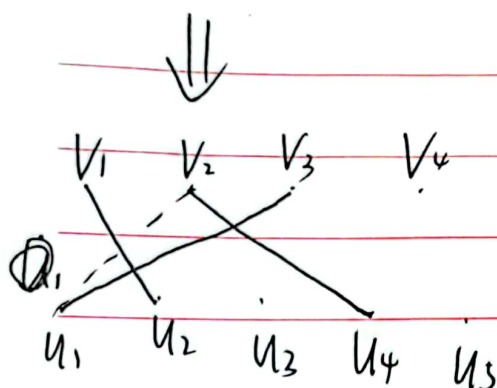 V₁ V₂ V₃ V₄
u₁ u₂ u₃ u₄ u₅